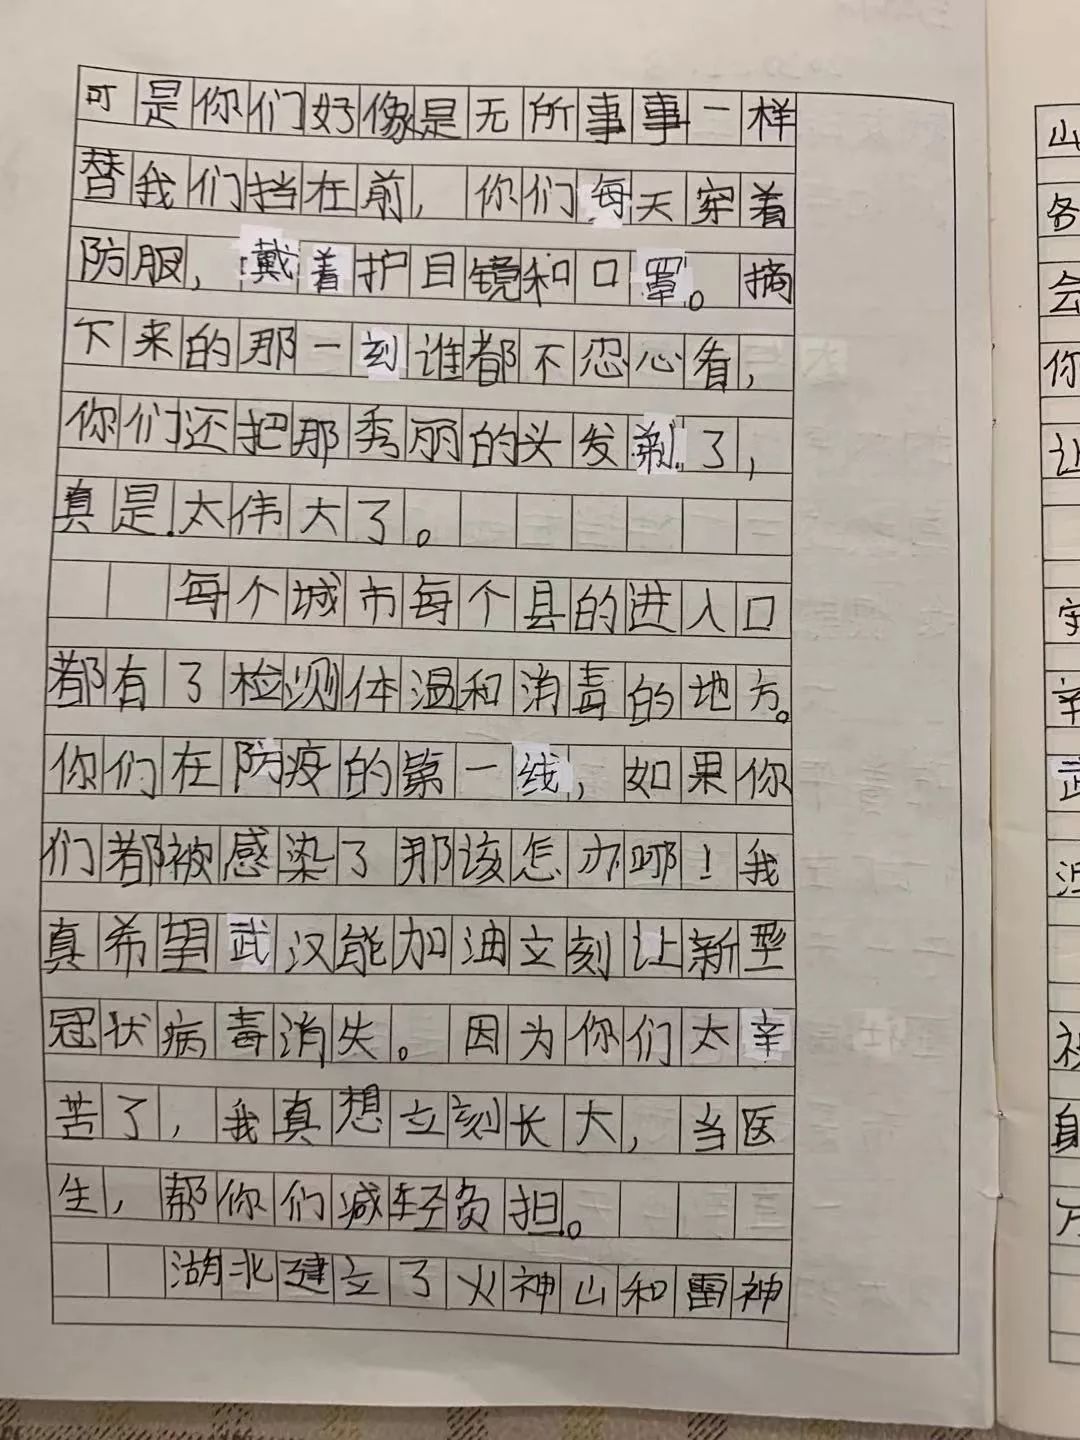 可是你们好像是无所事事一样
替我们挡在前，你们每天穿着
防服，戴着护目镜和口罩。摘
下来的那一刻谁都不忍心看，
你们还把那秀丽的头发剃了，
真是太伟大了。
每个城市每个县的进入口
都有了检测体温和消毒的地方。
你们在防疫的第一线，如果你
们都被感染了那该怎办哪！我
真希望武汉能加油立刻让新型
冠状病毒消失。因为你们太辛
苦了，我真想立刻长大，当医
生，帮你们减轻负担。
湖北建立了火神山和雷神
山
各
会
你
让
辛
武
身
万